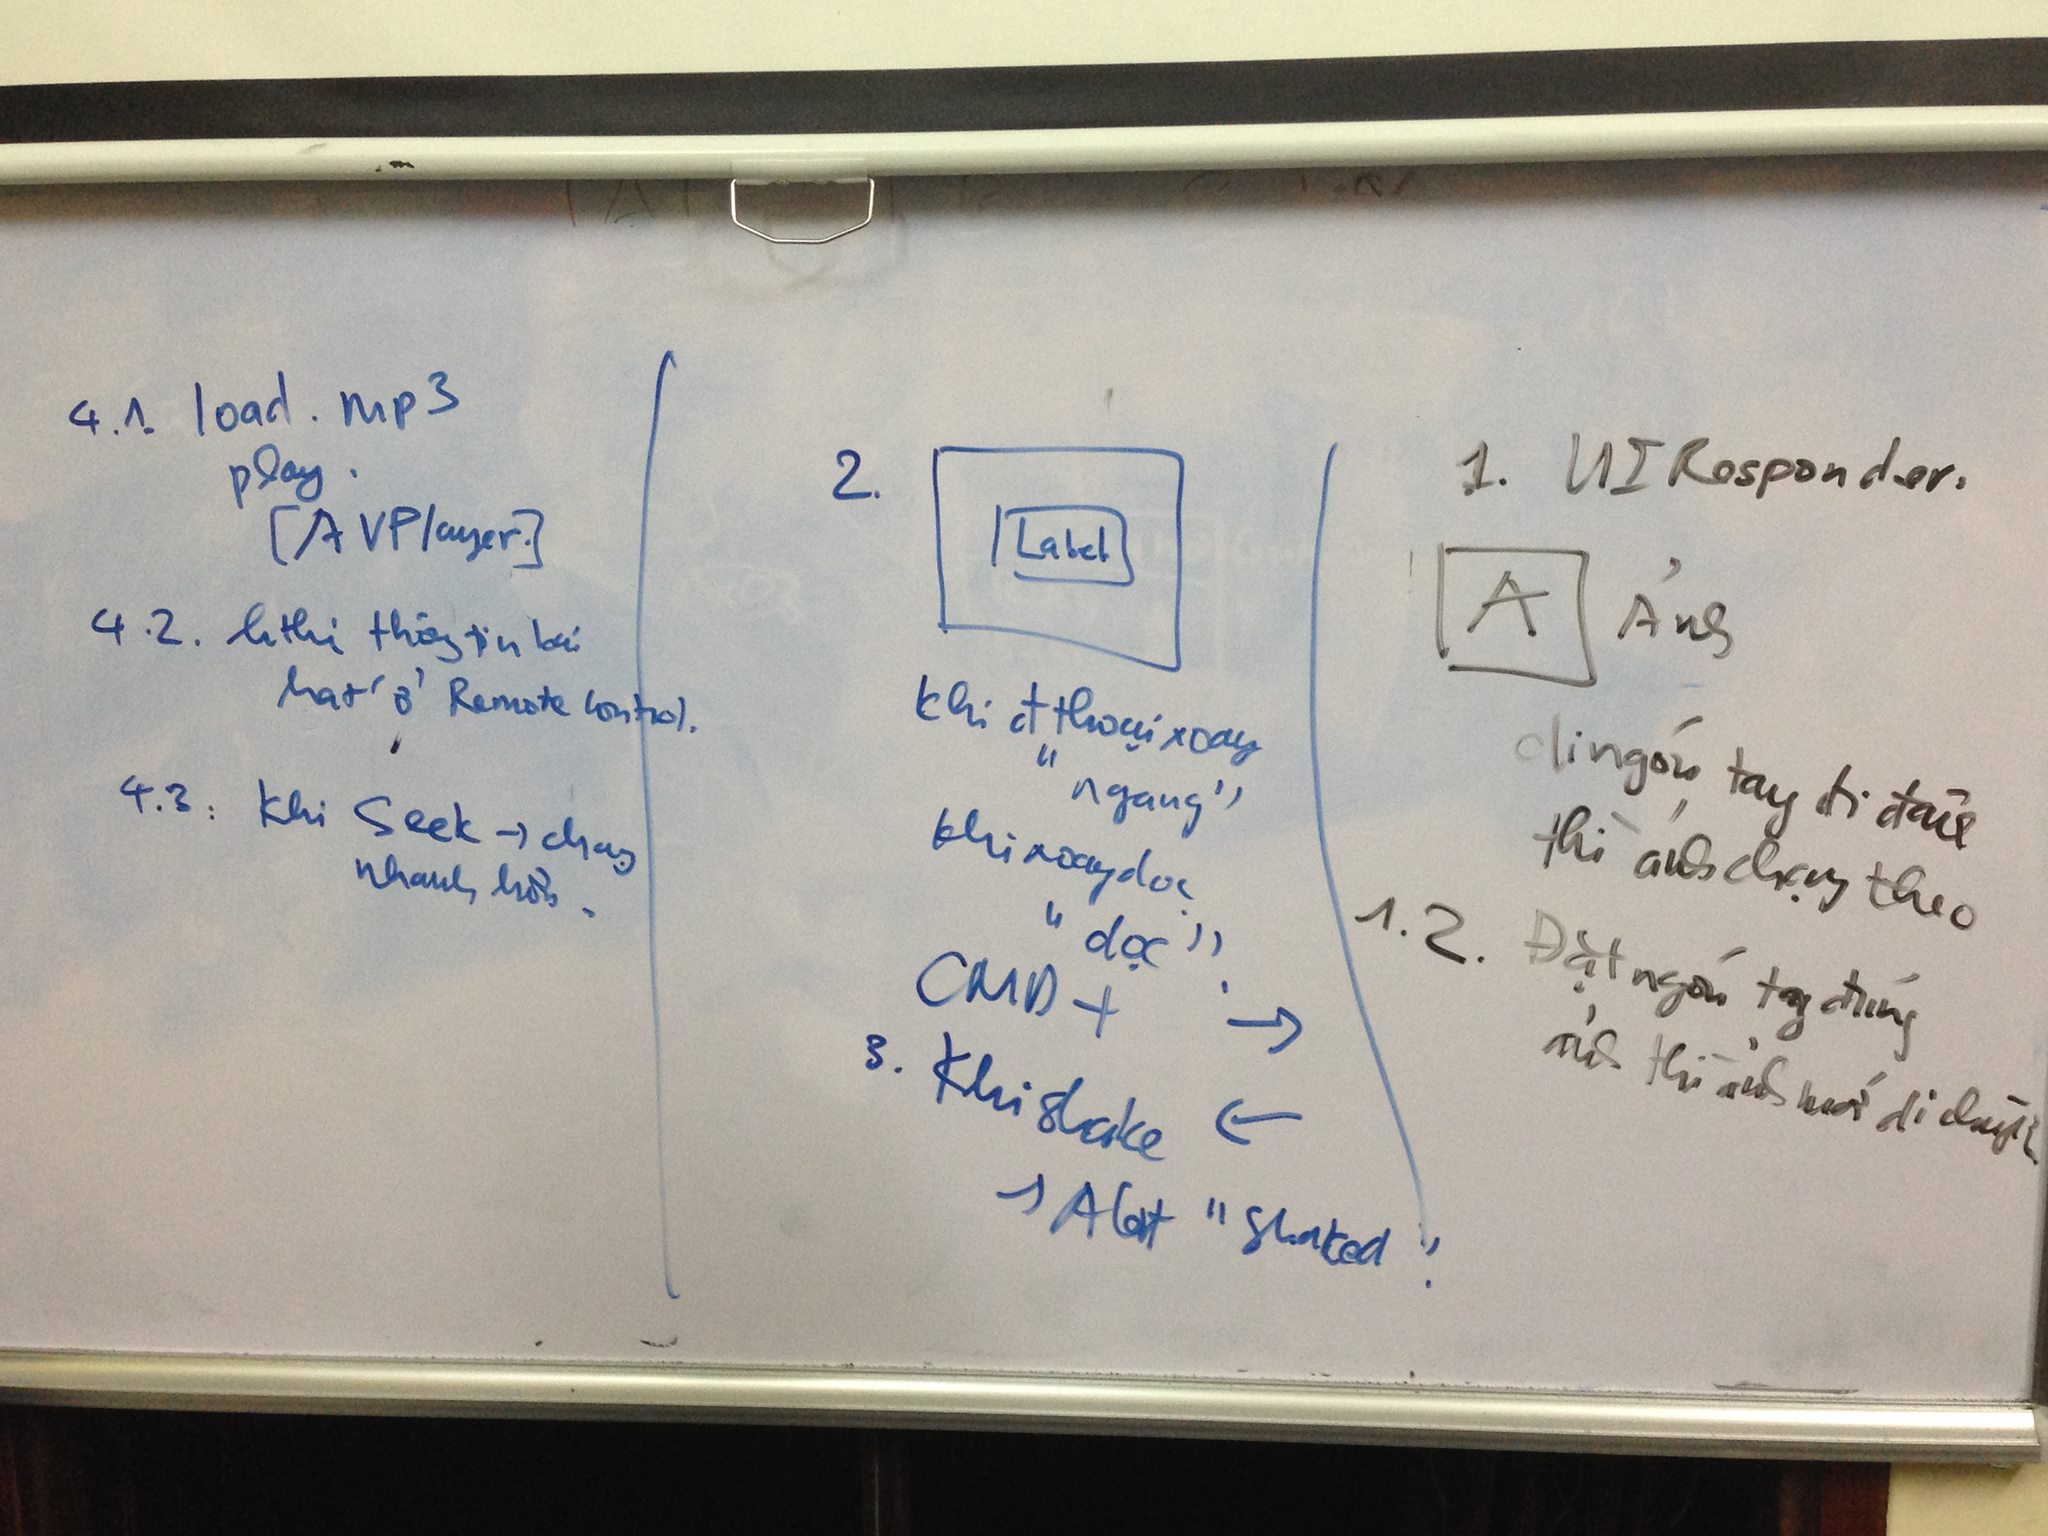 4.1. load. mp3
play.
[AVPlayer.]
4.2. hthi thông tin bài
hát ở Remote Control.
4.3: Khi Seek → chạy
nhanh hơn.
2.
Label
Khi đthoại xoay
"ngang"
Khi xoay dọc
"dọc".
CMD + →
←
3. Khi shake
→ Alert "shaked".
1. UIResponder.
A Ảnh
di ngón tay đi đâu
thì ảnh chạy theo
1.2. Đặt ngón tay đúng
ảnh thì ảnh mới di chuyển